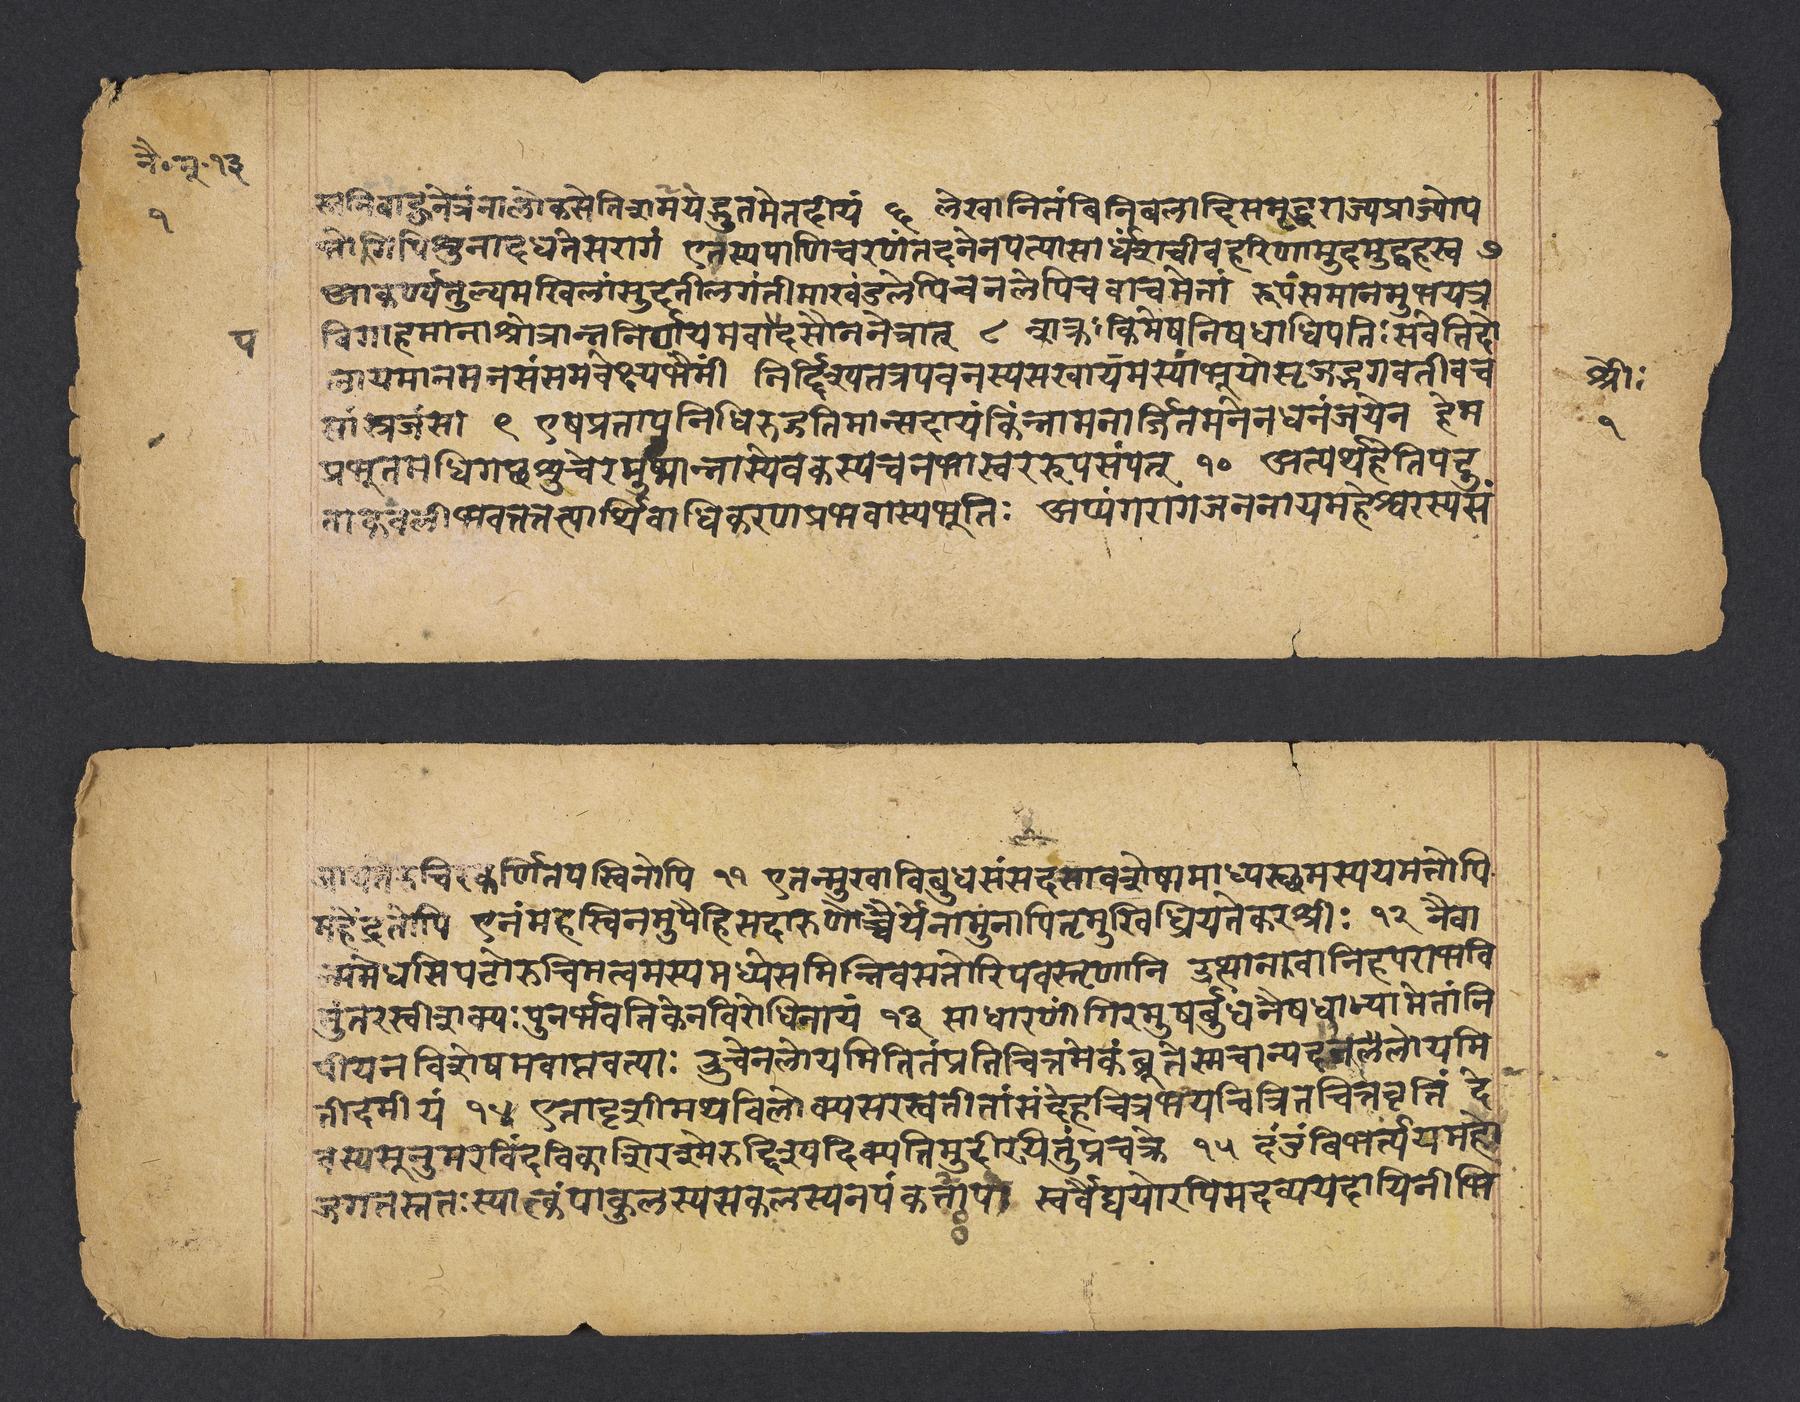 नै॰मू॰१३
१
लेनिबाहुनेत्रंनालोकसेतिशर्ममयेद्भुतमेतदीयं ६ लेखानितंबिनिबलादिसमृद्धराज्यप्राज्योप
भोगिपिशुनादधतेसरागं एतस्यपाणिचरणंतदनेनपत्यासार्धंशचीवहरिणामुदमुद्वहस्व ७
आकर्ण्यतुल्यमखिलांसुदतीलगंतीमाखंडलेपिचनलेपिचवाचमेतां रूपंसमानमुभयत्र
प
विगाहमानाश्रोत्रान्ननिर्णयमवादसौननेत्रात् ८ शक्रःकिमेषनिषधाधिपतिःसवेतिदो
लायमानमनसंसमवेक्ष्यभैमीं निर्दिश्यतत्रपवनस्यसखायमस्यांभूयोसृजद्भगवतीवच
सांस्रजंसा ९ एषप्रतापनिधिरुद्गतिमान्सदायंकिंन्नामनार्जितमनेनधनंजयेन हेम
प्रभूतमधिगच्छशुचेरमुष्मान्नास्येवकस्यचनभास्वररूपसंपत् १० अत्यर्थहेतिपटु
ताकवलीभवत्तत्तत्पार्थिवाधिकरणप्रभवास्यभूतिः अप्यंगरागजननायमहेश्वरस्यसं
श्रीः
१
जायतेरुचिरकर्णितपस्विनोपि ११ एतन्मुखाविबुधसंसदसावशेषामाध्यस्थमस्ययमतोपि
महेंद्रतोपि एनंमहस्विनमुपैहिसदारुणोच्चैर्येनामुनापितृमुखिध्रियतेकरश्रीः १२ नैवा
ल्पमेधसिपटोरुचिमत्वमस्यमध्येसमिन्निवसतोरिपवस्तृणानि उत्थानवानिहपराभवि
तुंतरस्वीशक्यःपुनर्भवतिकेनविरोधिनायं १३ साधारणींगिरमुषर्बुधनैषधाभ्यामेतांनि
पीयनविशेषमवाप्तवत्याः ऊचेनलोयमितितंप्रतिचित्तमेकंब्रूतेस्मचान्यदनलोयमि
तीदमीयं १४ एतादृशीमथविलोक्यसरस्वतीतांसंदेहचित्रभयचित्रितचित्तवृत्तिं दे
वस्यसूनुमरविंदविकाशिरश्मेरुद्दिश्यदिक्पतिमुदीरयितुंप्रचक्रे १५ दंडंबिभर्त्ययमहो
जगतस्ततःस्यात्कंपाकुलस्यसकलस्यनपंकतापः स्वर्वैद्ययोरपिमदव्ययदायिनीभि